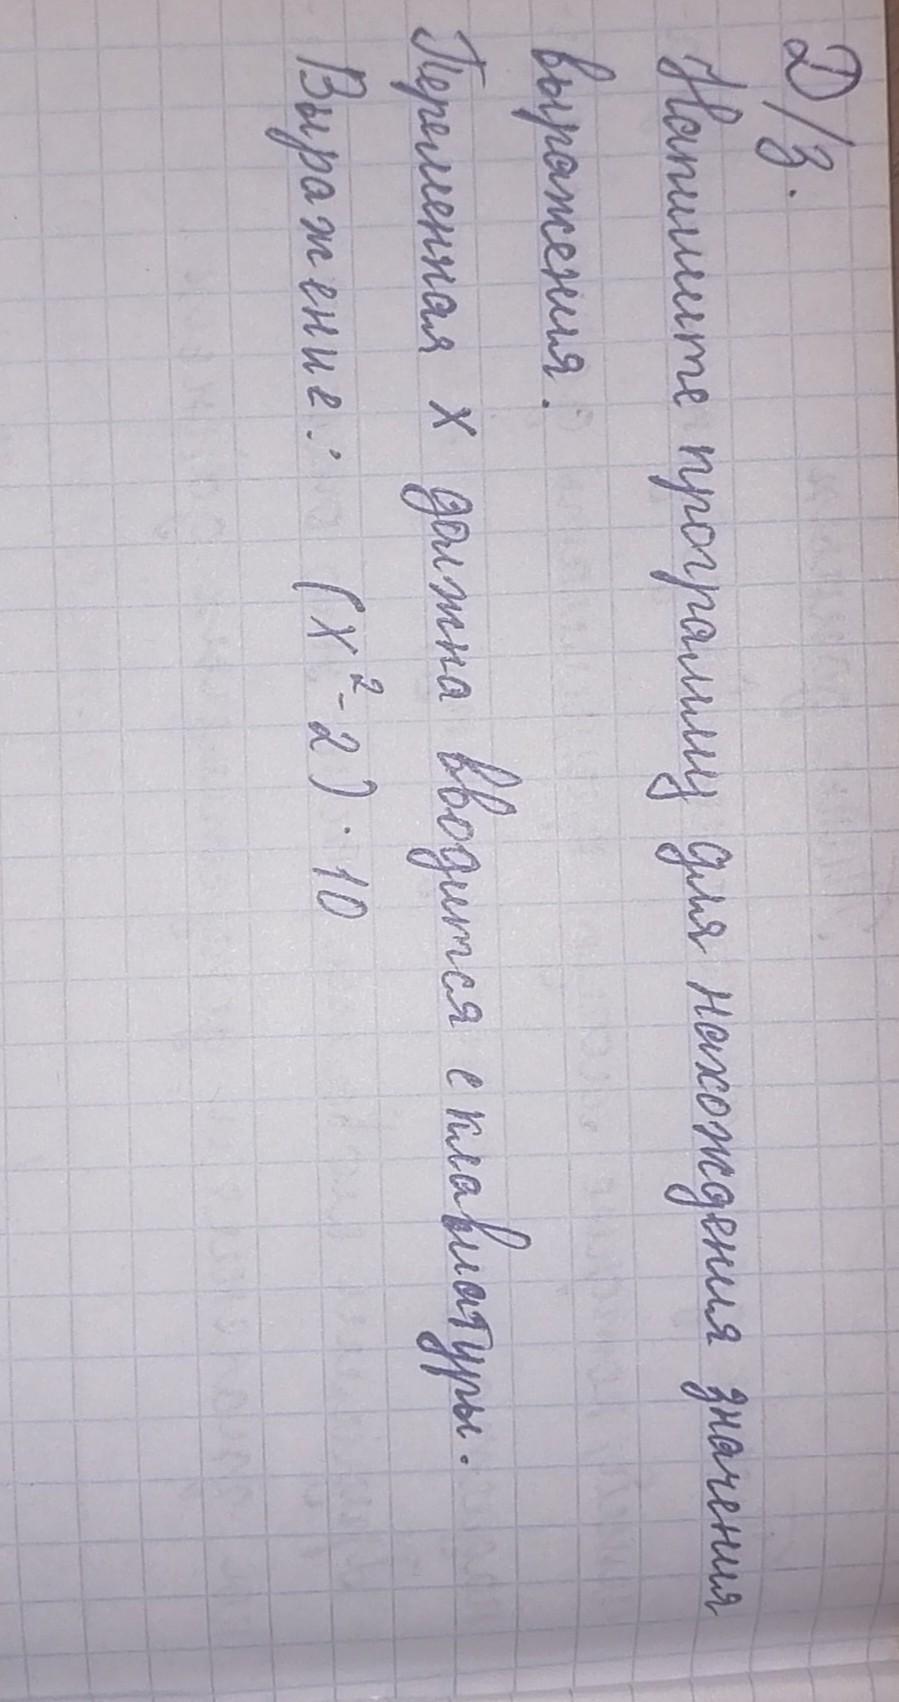 Д/з.
Напишите программу для нахождения значения
выражения.
Переменная х должна вводится с клавиатуры.
Выражение: (х²-2)·10